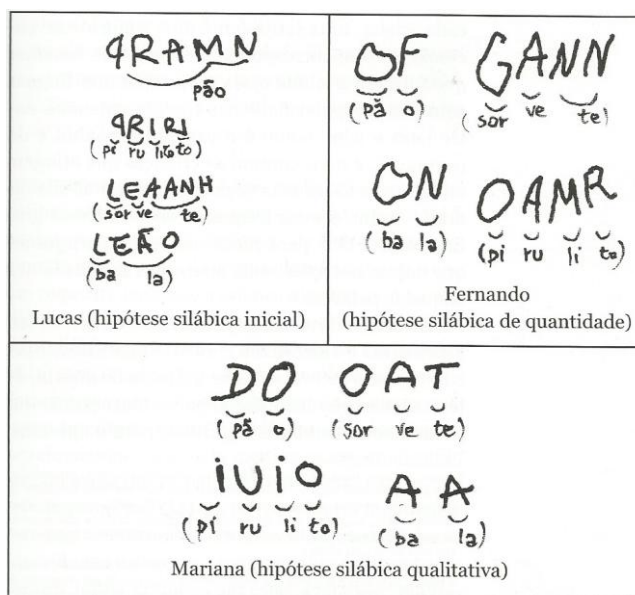 PRAMN
pão
(pi ru li to)
LEAANH
(sor ve te)
LEÃO
(ba la)
Lucas (hipótese silábica inicial)
OF GANN
(pã o) (sor ve te)
ON OAMR
(ba la) (pi ru li to)
Fernando
(hipótese silábica de quantidade)
DO OAT
(pã o) (sor ve te)
iUiO A A
(pi ru li to) (ba la)
Mariana (hipótese silábica qualitativa)